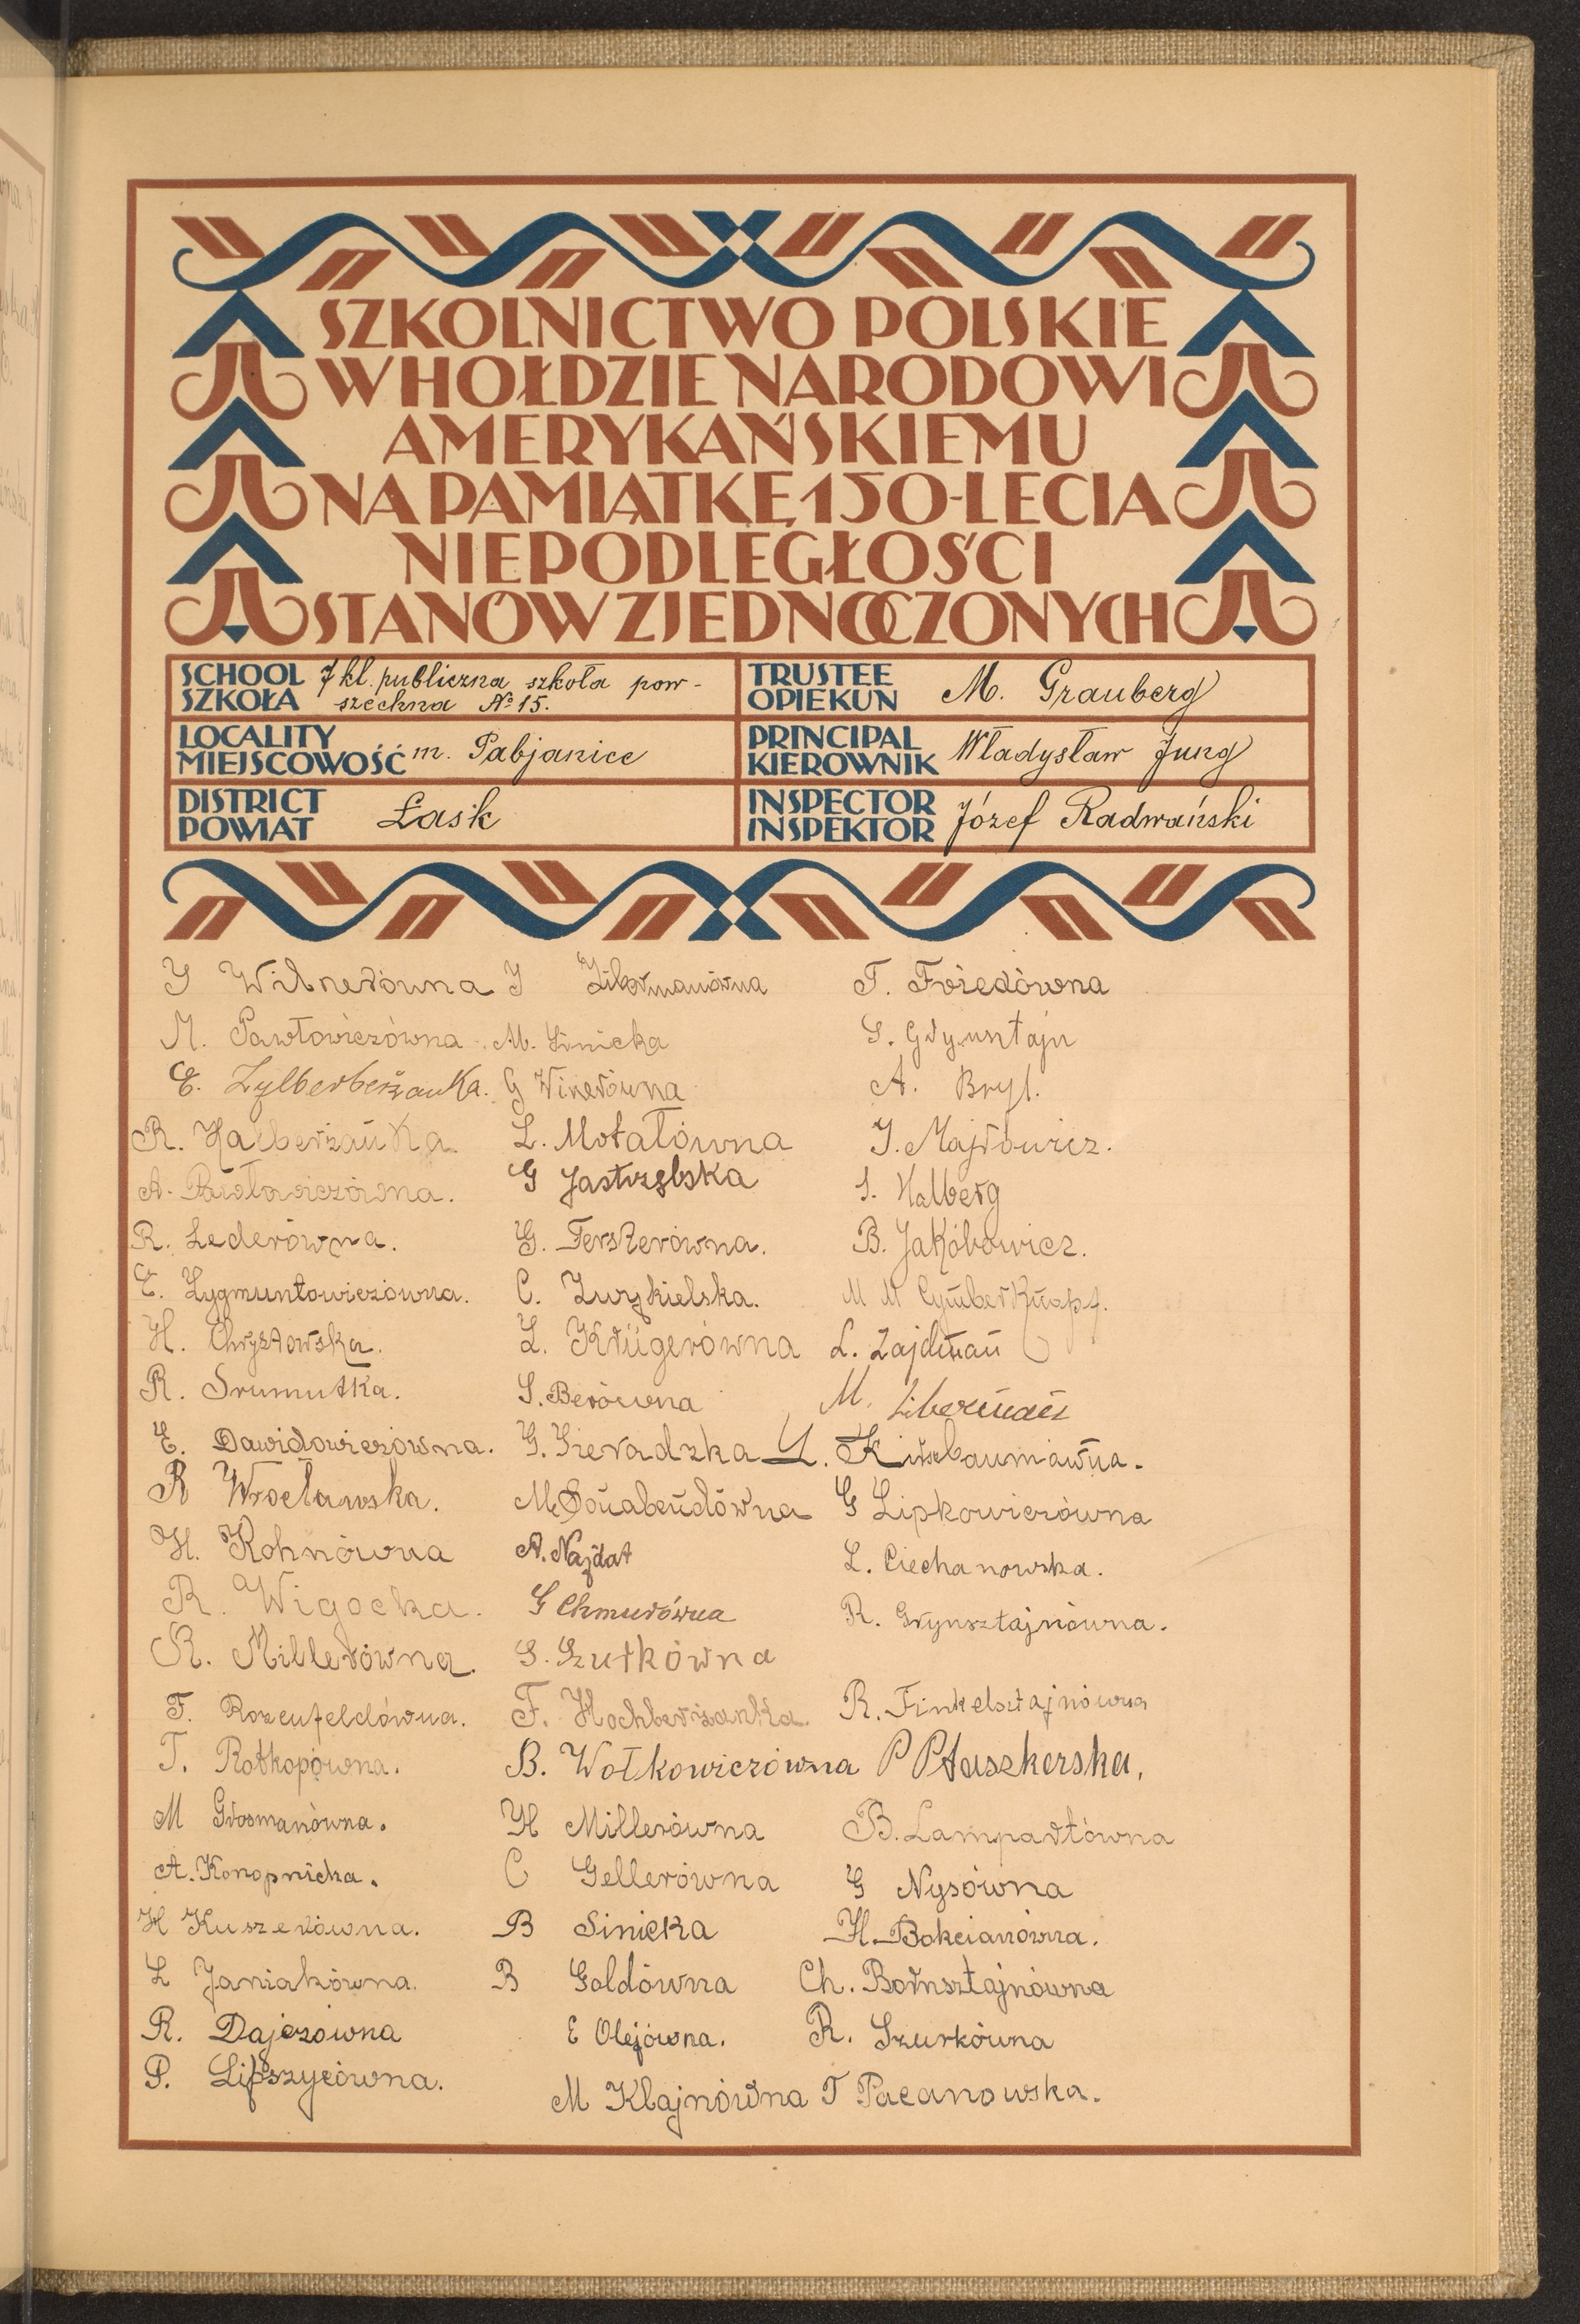 SZKOLNICTWO POLSKIE
W HOŁDZIE NARODOWI
AMERYKAŃSKIEMU
NA PAMIĄTKĘ 150-LECIA
NIEPODLEGŁOŚCI
STANÓW ZJEDNOCZONYCH
SCHOOL
SZKOŁA
7 kl. publiczna szkoła pow-
szechna № 15.
TRUSTEE
OPIEKUN
M. Grauberg
LOCALITY
MIEJSCOWOŚĆ
m. Pabjanice
PRINCIPAL
KIEROWNIK
Władysław Jung
DISTRICT
POWIAT
Łask
INSPECTOR
INSPEKTOR
Józef Radwański
Y Wilnerówna
M. Pawłowiczówna
E. Zylberberżanka.
R. Halberżanka.
A. Pawłowiczówna.
R. Lederówna.
E. Zygmuntowiczówna.
H. Chrystowska.
R.
E. Dawidowiczówna.
R Wrocławska.
H. Kohnówna
R. Wigocka.
R. Millerówna.
F. Rozenfeldówna.
T. Rotkopówna.
M Grosmanówna.
A. Konopnicka.
H Kuszerówna.
L Janiakówna.
R. Dajczówna
P. Lipszycówna.
Y
M. Linicka
G Winerówna
L. Motałówna
G Jastrzębska
G. Ferszterówna.
C.
L. Krügerówna
S. Berówna
G. Sieradzka
M Sonabendówna
A. Najdat
G Chmurówna
S. Szutkówna
F. Hochberżanka.
B. Wołkowiczówna
H Millerówna
C Gellerówna
B Sinicka
B Goldówna
E Olejówna.
M Klajnówna
T. Friedówna
S. Grynsztajn
A. Bryl.
J. Majrowicz.
S. Halberg
B. Jakóbowicz.
M Cymberknopf.
L. Zajdman
M. Liberman
Y. Kirszbaumówna.
G Lipkowiczówna
L. Ciechanowska.
R. Grynsztajnówna.
R. Finkelsztajnówna
P Ptaszkerska.
B. Lampartówna
G Nysówna
H. Bokcianówna.
Ch. Bornsztajnówna
R. Szurkówna
T Pacanowska.